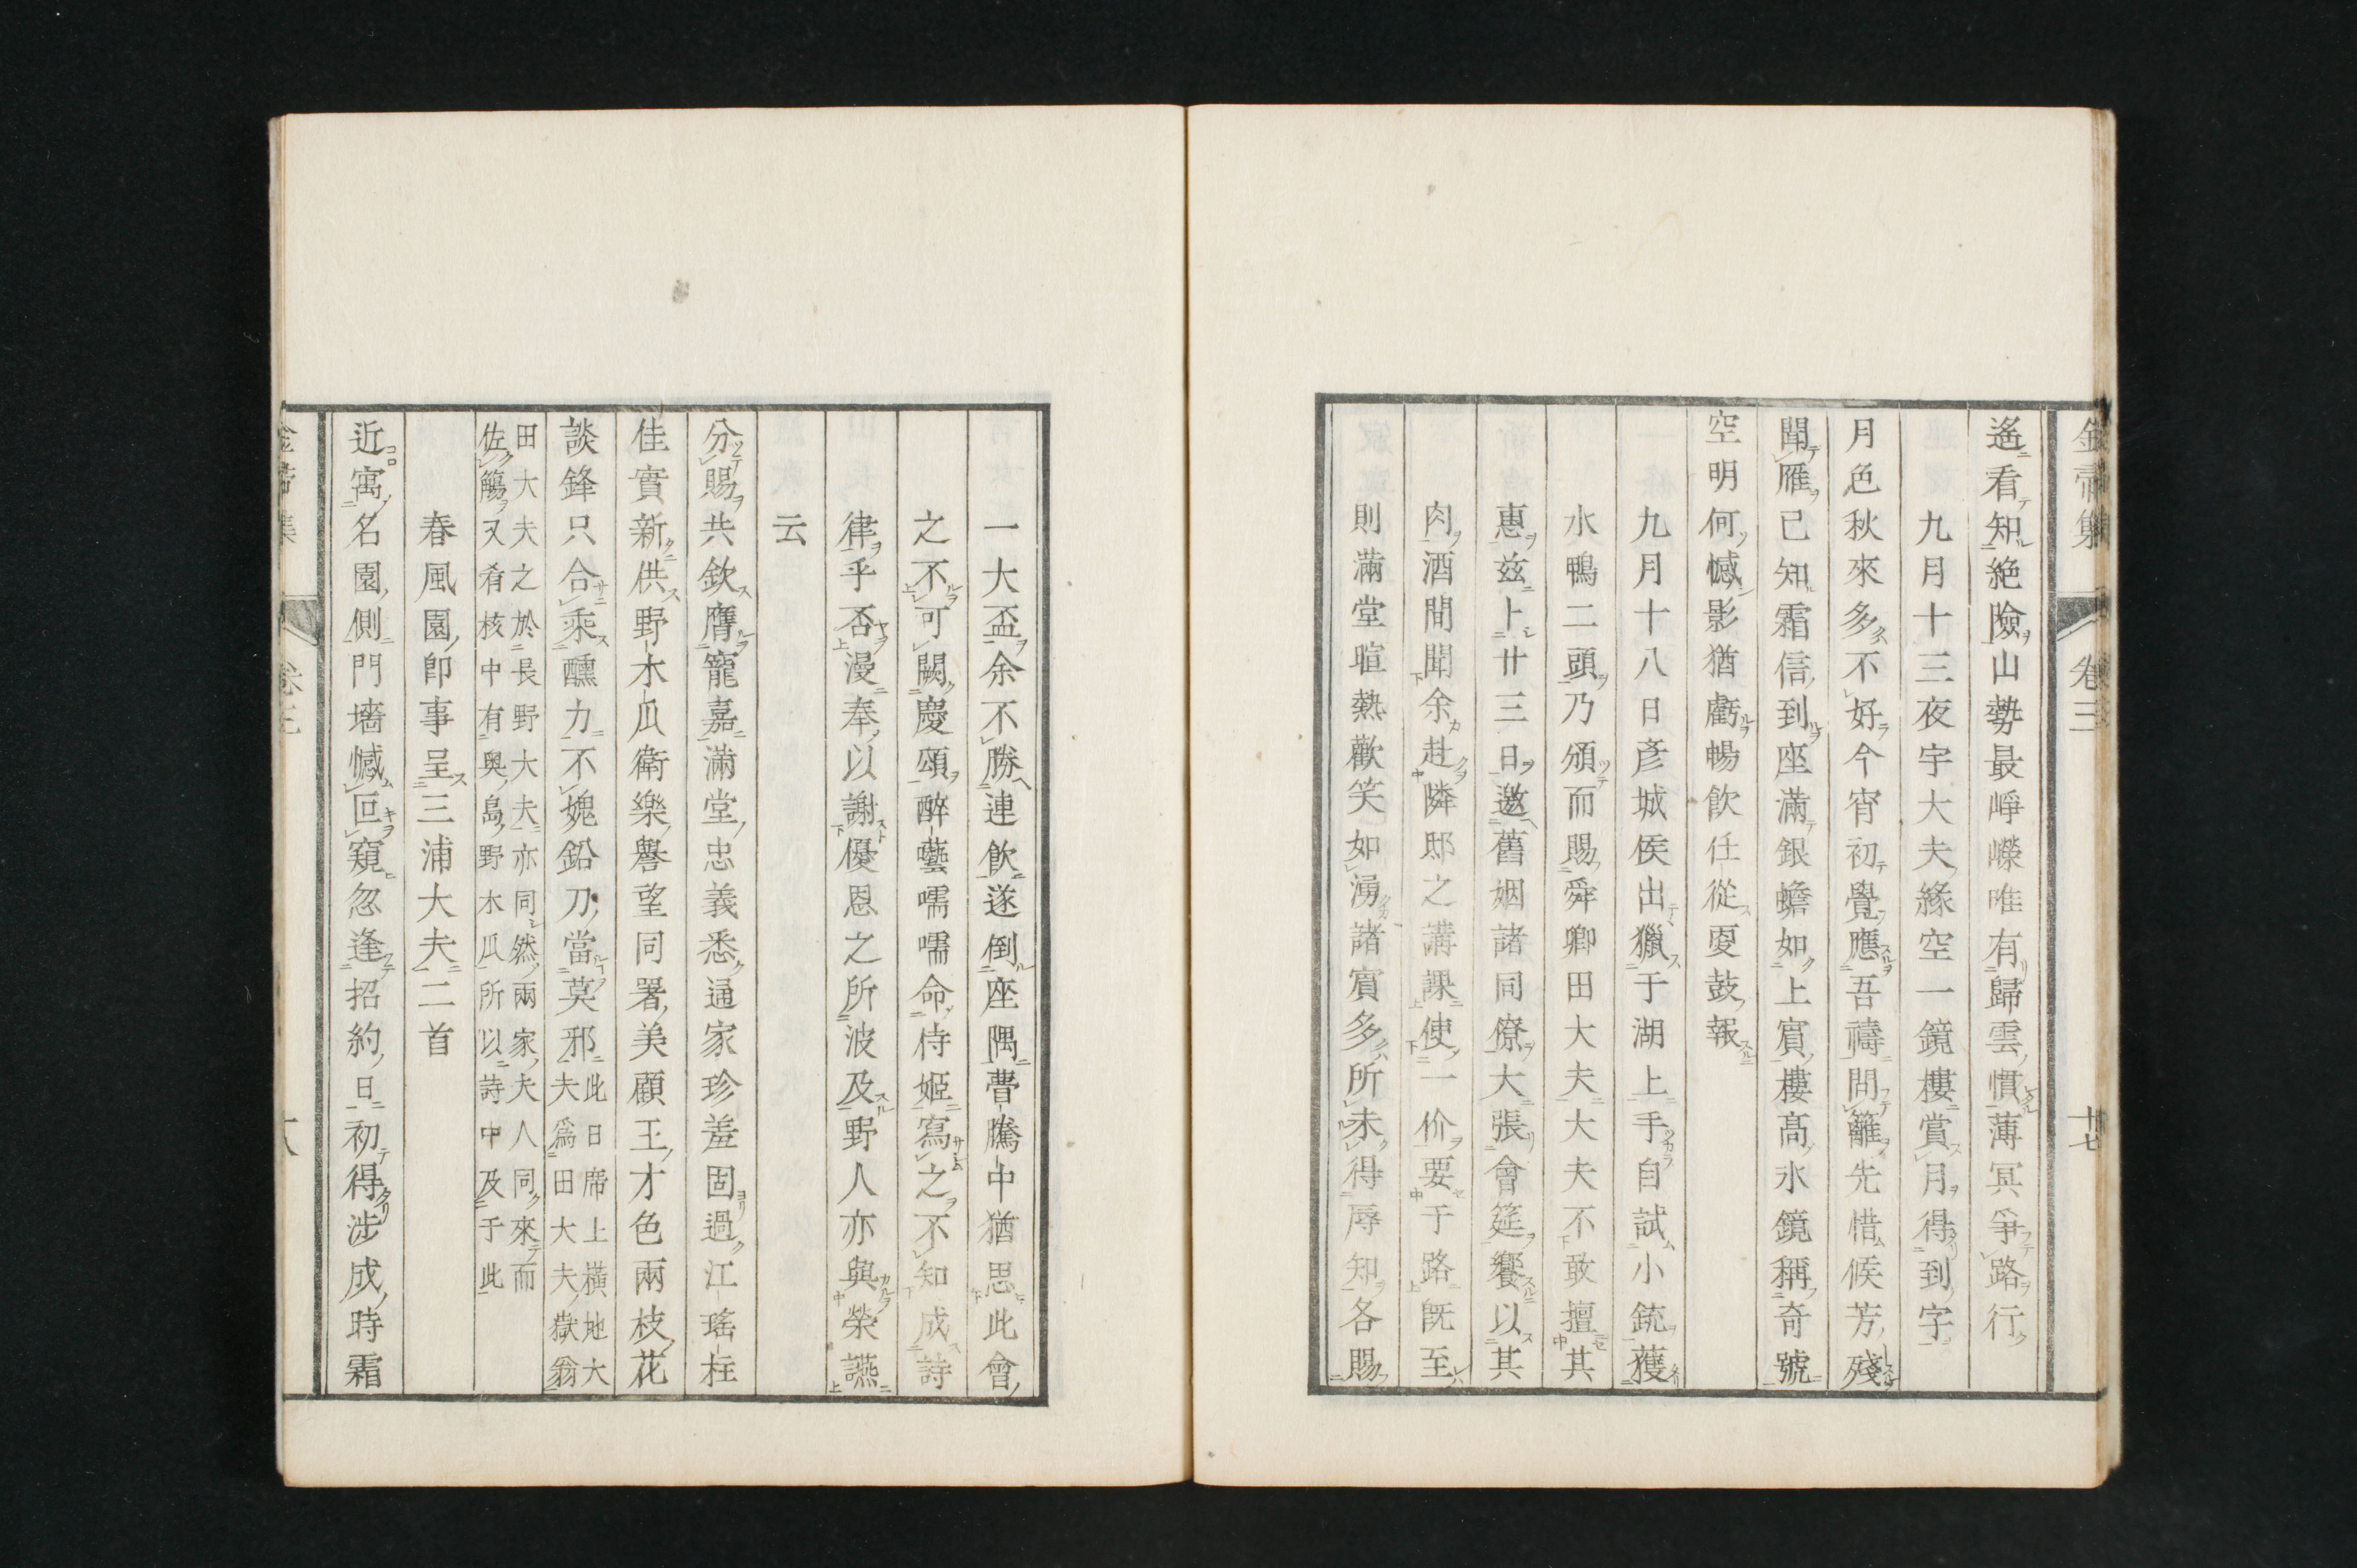 卷三
十七
遙看知絶險山勢最崢嶸唯有歸雲慣薄冥爭路行
九月十三夜宇大夫緣空一鏡樓賞月得到字
月色秋來多不好今宵初覺應吾禱問籬先惜候芳殘
聞雁已知霜信到座滿銀蟾如上賓樓高氷鏡稱奇號
空明何憾影猶虧暢飮任從更鼓報
九月十八日彥城侯出獵于湖上手自試小銃獲
水鴨二頭乃頒而賜舜卿田大夫大夫不敢擅其
惠茲卜廿三日邀舊姻諸同僚大張會筵饗以其
肉酒間聞余赴隣邸之講課使一价要于路旣至
則滿堂暄熱歡笑如湧諸賓多所未得辱知各賜
一大盃余不勝連飮遂倒座隅瞢騰中猶思此會
之不可闕慶頌醉囈嚅嚅命侍姬寫之不知成詩
律乎否漫奉以謝優恩之所波及野人亦與榮讌
云
分賜共欽膺寵嘉滿堂忠義悉通家珍羞固過江瑤柱
佳實新供野木瓜衛樂譽望同署美顧王才色兩枝花
談鋒只合乘醺力不媿鉛刀當莫邪此日席上橫地大
夫爲田大夫嶽翁
田大夫之於長野大夫亦同然兩家夫人同來而
佐觴又肴核中有與島野木瓜所以詩中及于此
春風園卽事呈三浦大夫二首
近寓名園側門墻憾回窺忽逢招約日初得涉成時霜